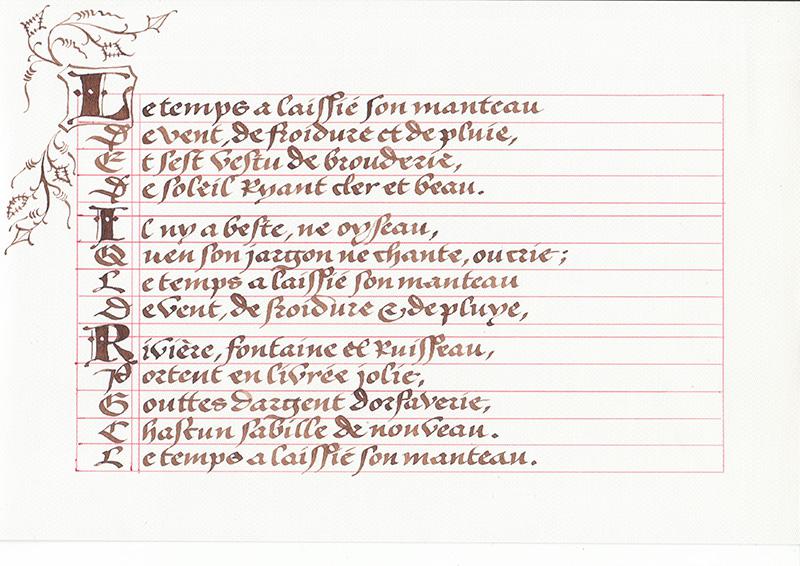 Le temps a laissié son manteau
De vent, de froidure et de pluie,
Et sest vestu de brouderie,
De soleil Ryant cler et beau.
Il ny a beste, ne oyseau,
Quen son jargon ne chante, ou crie;
Le temps a laissié son manteau
De vent, de froidure & de pluye,
Rivière, fontaine et Ruisseau,
Portent en livrée jolie,
Gouttes dargent dorfaverie,
Chascun sabille de nouveau.
Le temps a laissié son manteau.